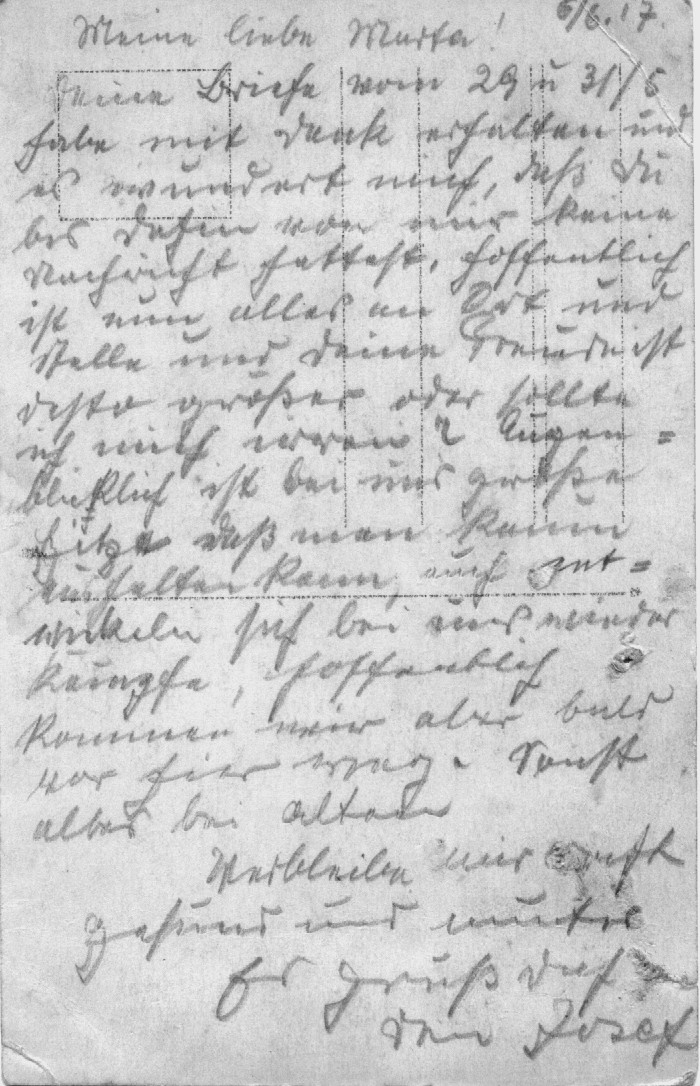 6/6.17.
Meine liebe Marta!
Deine Briefe vom 29 u 31/5
habe mit Dank erhalten und
es wundert mich, daß Du
bis dahin von mir keine
Nachricht hattest, hoffentlich
ist nun alles an Ort und
Stelle und Deine Freude ist
desto größer oder sollte
ich mich irren? Augen=
blicklich ist bei uns große
Hitze daß man kaum
aushalten kann, auch ent=
wickeln sich bei uns wieder
Kämpfe, hoffentlich
kommen wir aber bald
von hier weg. Sonst
alles bei altem
Verbleibe mir
gesund und munter
Es grüßt Dich
Dein Josef